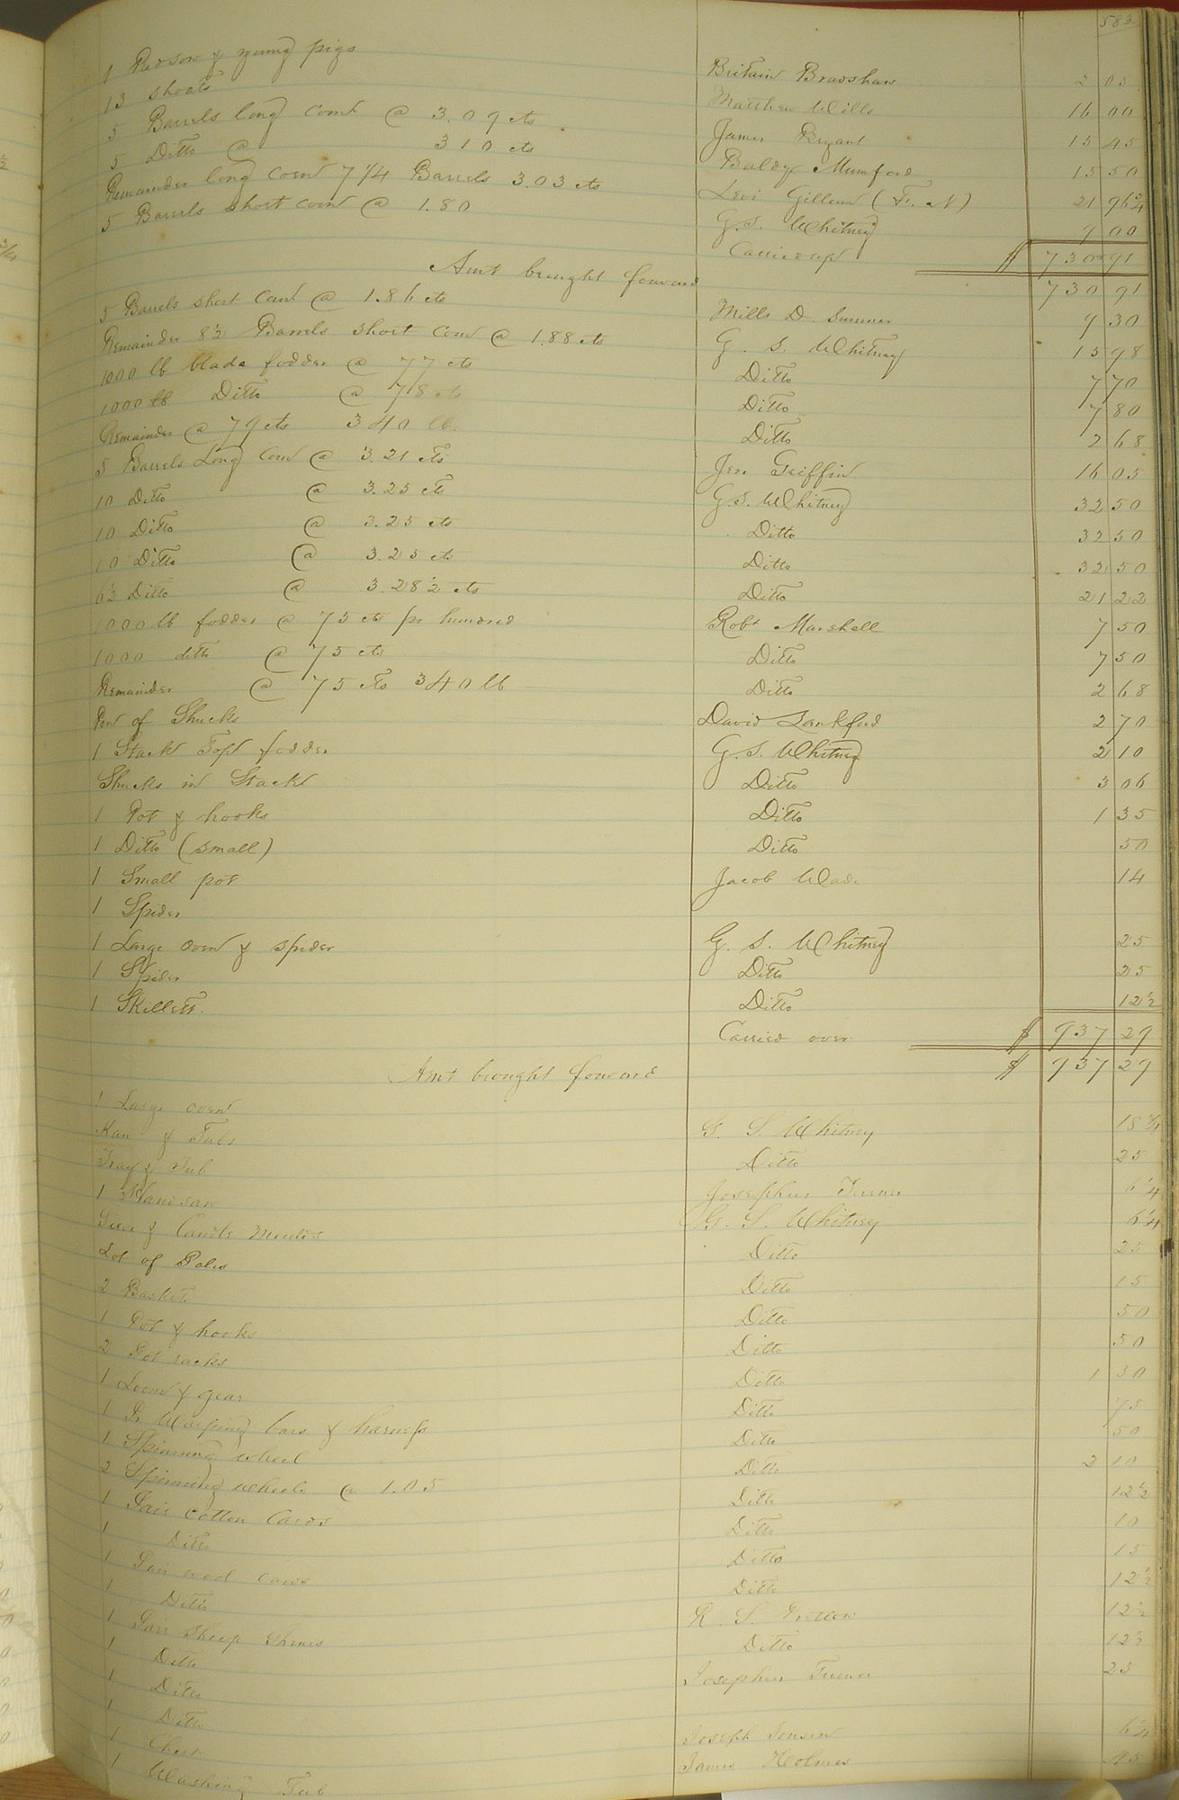 583
1 & young pigs Britain Bradshaw 2 05
13 shoats Matthew Wills 16 00
5 Barrels long corn @ 3.09 cts James Bryant 15 45
5 Ditto @ 310 cts Baldy Mumford 15 50
Remainder long corn 7 1/4 Barrels 3.03 cts Levi Gillum (F. N) 21 96 3/4
5 Barrels short corn @ 1.80 G. S. Whitney 9 00
Carried up $ 730 91
Amt brought forward 730 91
5 Barrels short corn @ 1.86 cts Mills D Sumner 9 30
Remainder 8 1/2 Barrels short corn @ 1.88 cts G. S. Whitney 15 98
1000 lb blade fodder @ 77 cts Ditto 7 70
1000 lb Ditto @ 78 cts Ditto 7 80
Remainder @ 79 cts 340 lb. Ditto 2 68
5 Barrels Long Corn @ 3.21 cts Jno. Griffin 16 05
10 Ditto @ 3.25 cts G. S. Whitney 32 50
10 Ditto @ 3.25 cts Ditto 32 50
10 Ditto @ 3.25 cts Ditto 32 50
6 1/2 Ditto @ 3.28 1/2 cts Ditto 21 22
1000 lb fodder @ 75 cts pr hundred Robt Marshall 7 50
1000 ditto @ 75 cts Ditto 7 50
Remainder @ 75 cts 340 lb Ditto 2 68
of Shucks David Lankford 2 70
1 Stack Top fodder G. S. Whitney 2 10
Shucks in Stack Ditto 3 06
1 Pot & hooks Ditto 1 35
1 Ditto (small) Ditto 50
1 Small pot Jacob Wade 14
1 Spider
1 Large oven & spider G. S. Whitney 25
1 Spider Ditto 25
1 Skillett. Ditto 12 1/2
Carried over $ 937 29
Amt brought forward $ 937 29
1 Large oven
& Tubs G. S. Whitney 18 3/4
Tray & Tub Ditto 25
1 Handsaw Josephus Turner 6 1/4
& Candle Moulds G. S. Whitney 6 1/4
Lot of Ditto 25
2 Baskets Ditto 15
1 Pot & hooks Ditto 50
2 Pot racks Ditto 50
1 Loom & gear Ditto 1 30
1 Warping bars & harness Ditto 75
1 Spinning wheel Ditto 50
2 Spinning wheels @ 1.05 Ditto 2 10
1 Pair cotton Cards Ditto 12 1/2
1 Ditto Ditto 10
1 Pair wool cards Ditto 15
1 Ditto Ditto 12 1/2
1 Pair Sheep Shears R. S. 12 1/2
1 Ditto Ditto 12 1/2
1 Ditto Josephus Turner 25
1 Ditto
1 Chest Joseph 6 1/4
1 Washing Tub James Holmes